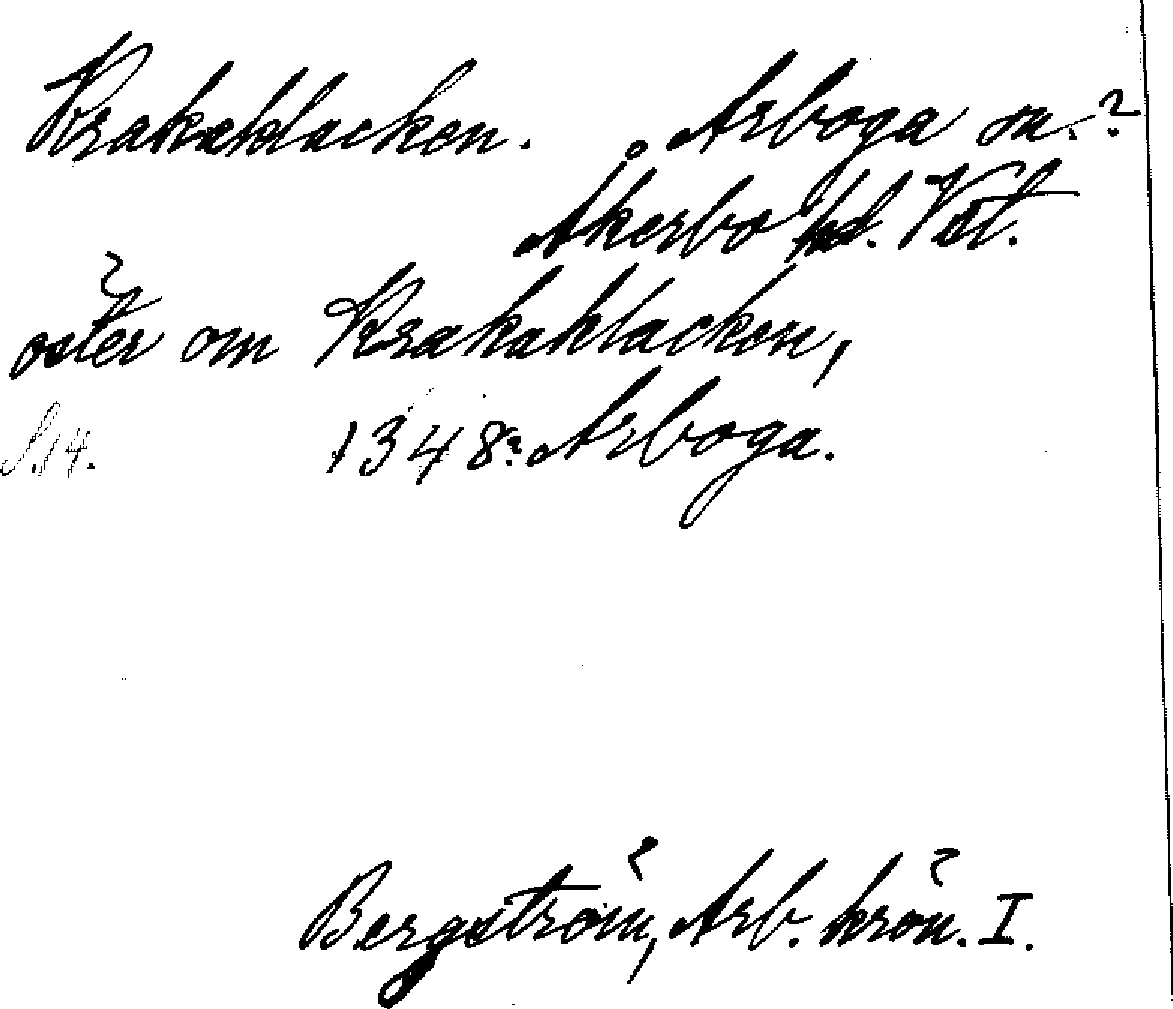 Krakaklacken. Arboga sn.?
Åkerbo hd. Vstl.
öster om Krakaklacken,
S. 14. 1348: Arboga.
Bergström, Arb. krön. I.